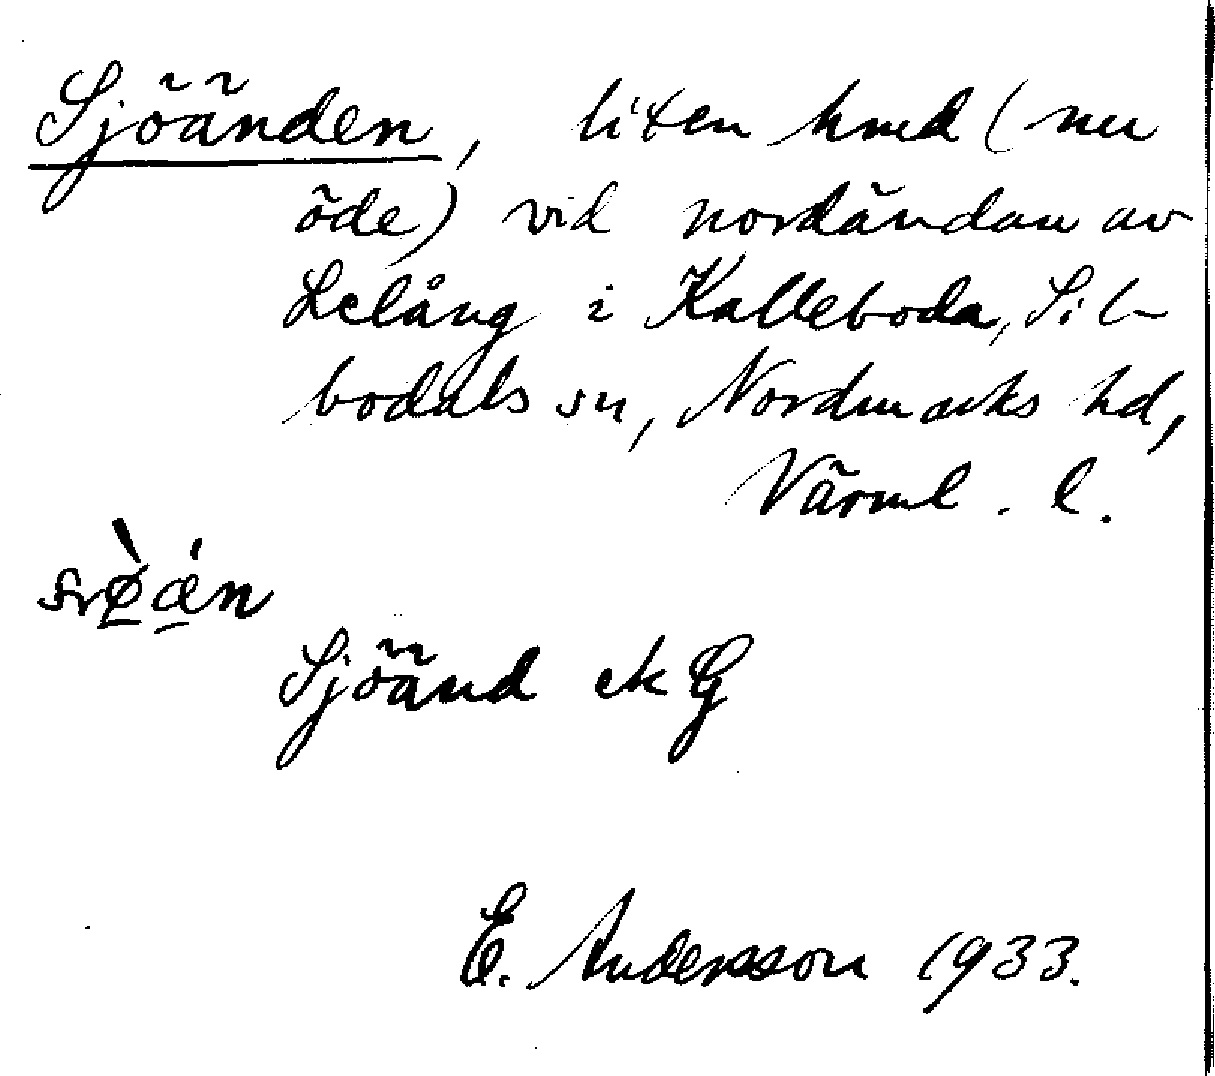 Sjöänden, liten hmd (nu
öde) vid nordändan av
Lelång i Kalleboda, Sil-
bodals sn, Nordmarks hd,
Värml. l.
Sjöänd ek G
E. Andersson 1933.